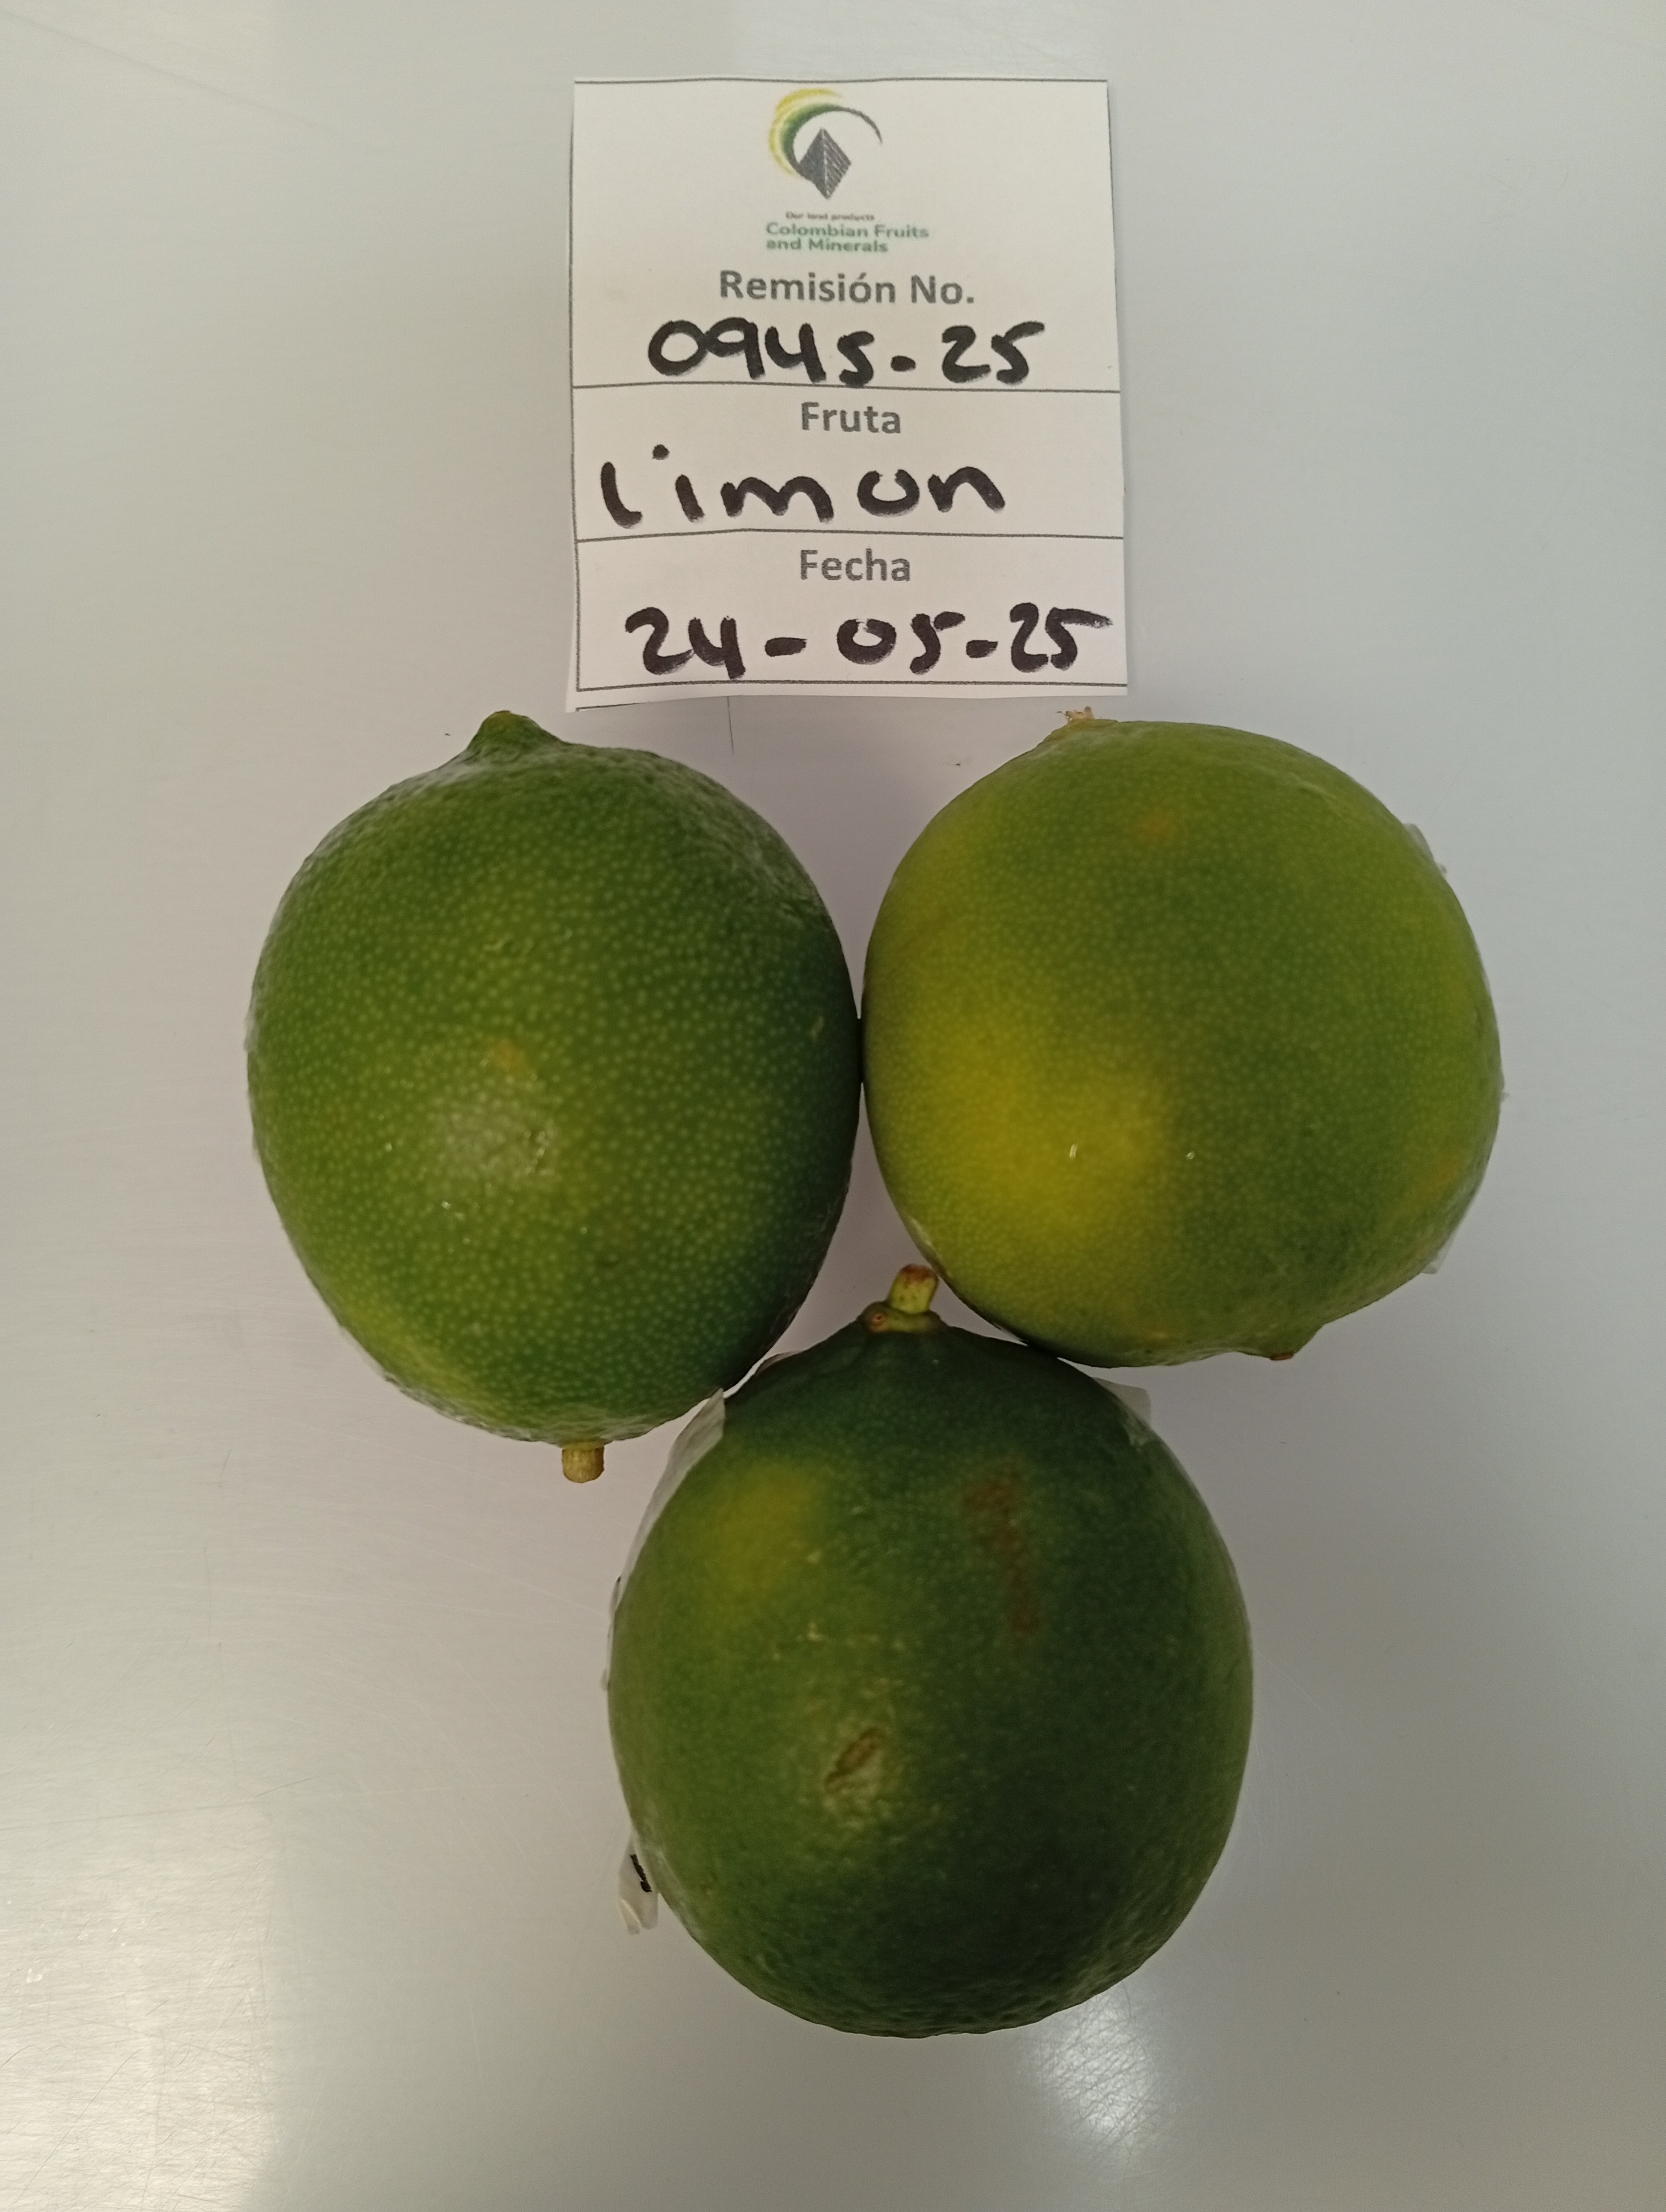 Our land products
Colombian Fruits
and Minerals
Remisión No.
0945-25
Fruta
limon
Fecha
24-05-25